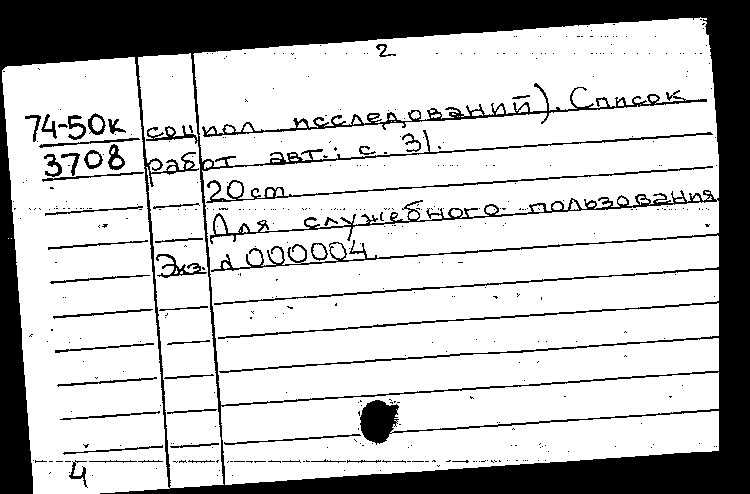 2
74-50к социол. исследований). Список
3708 работ авт.: с. 31.
20 cm.
Для служебного пользования.
Экз. № 000004.
4